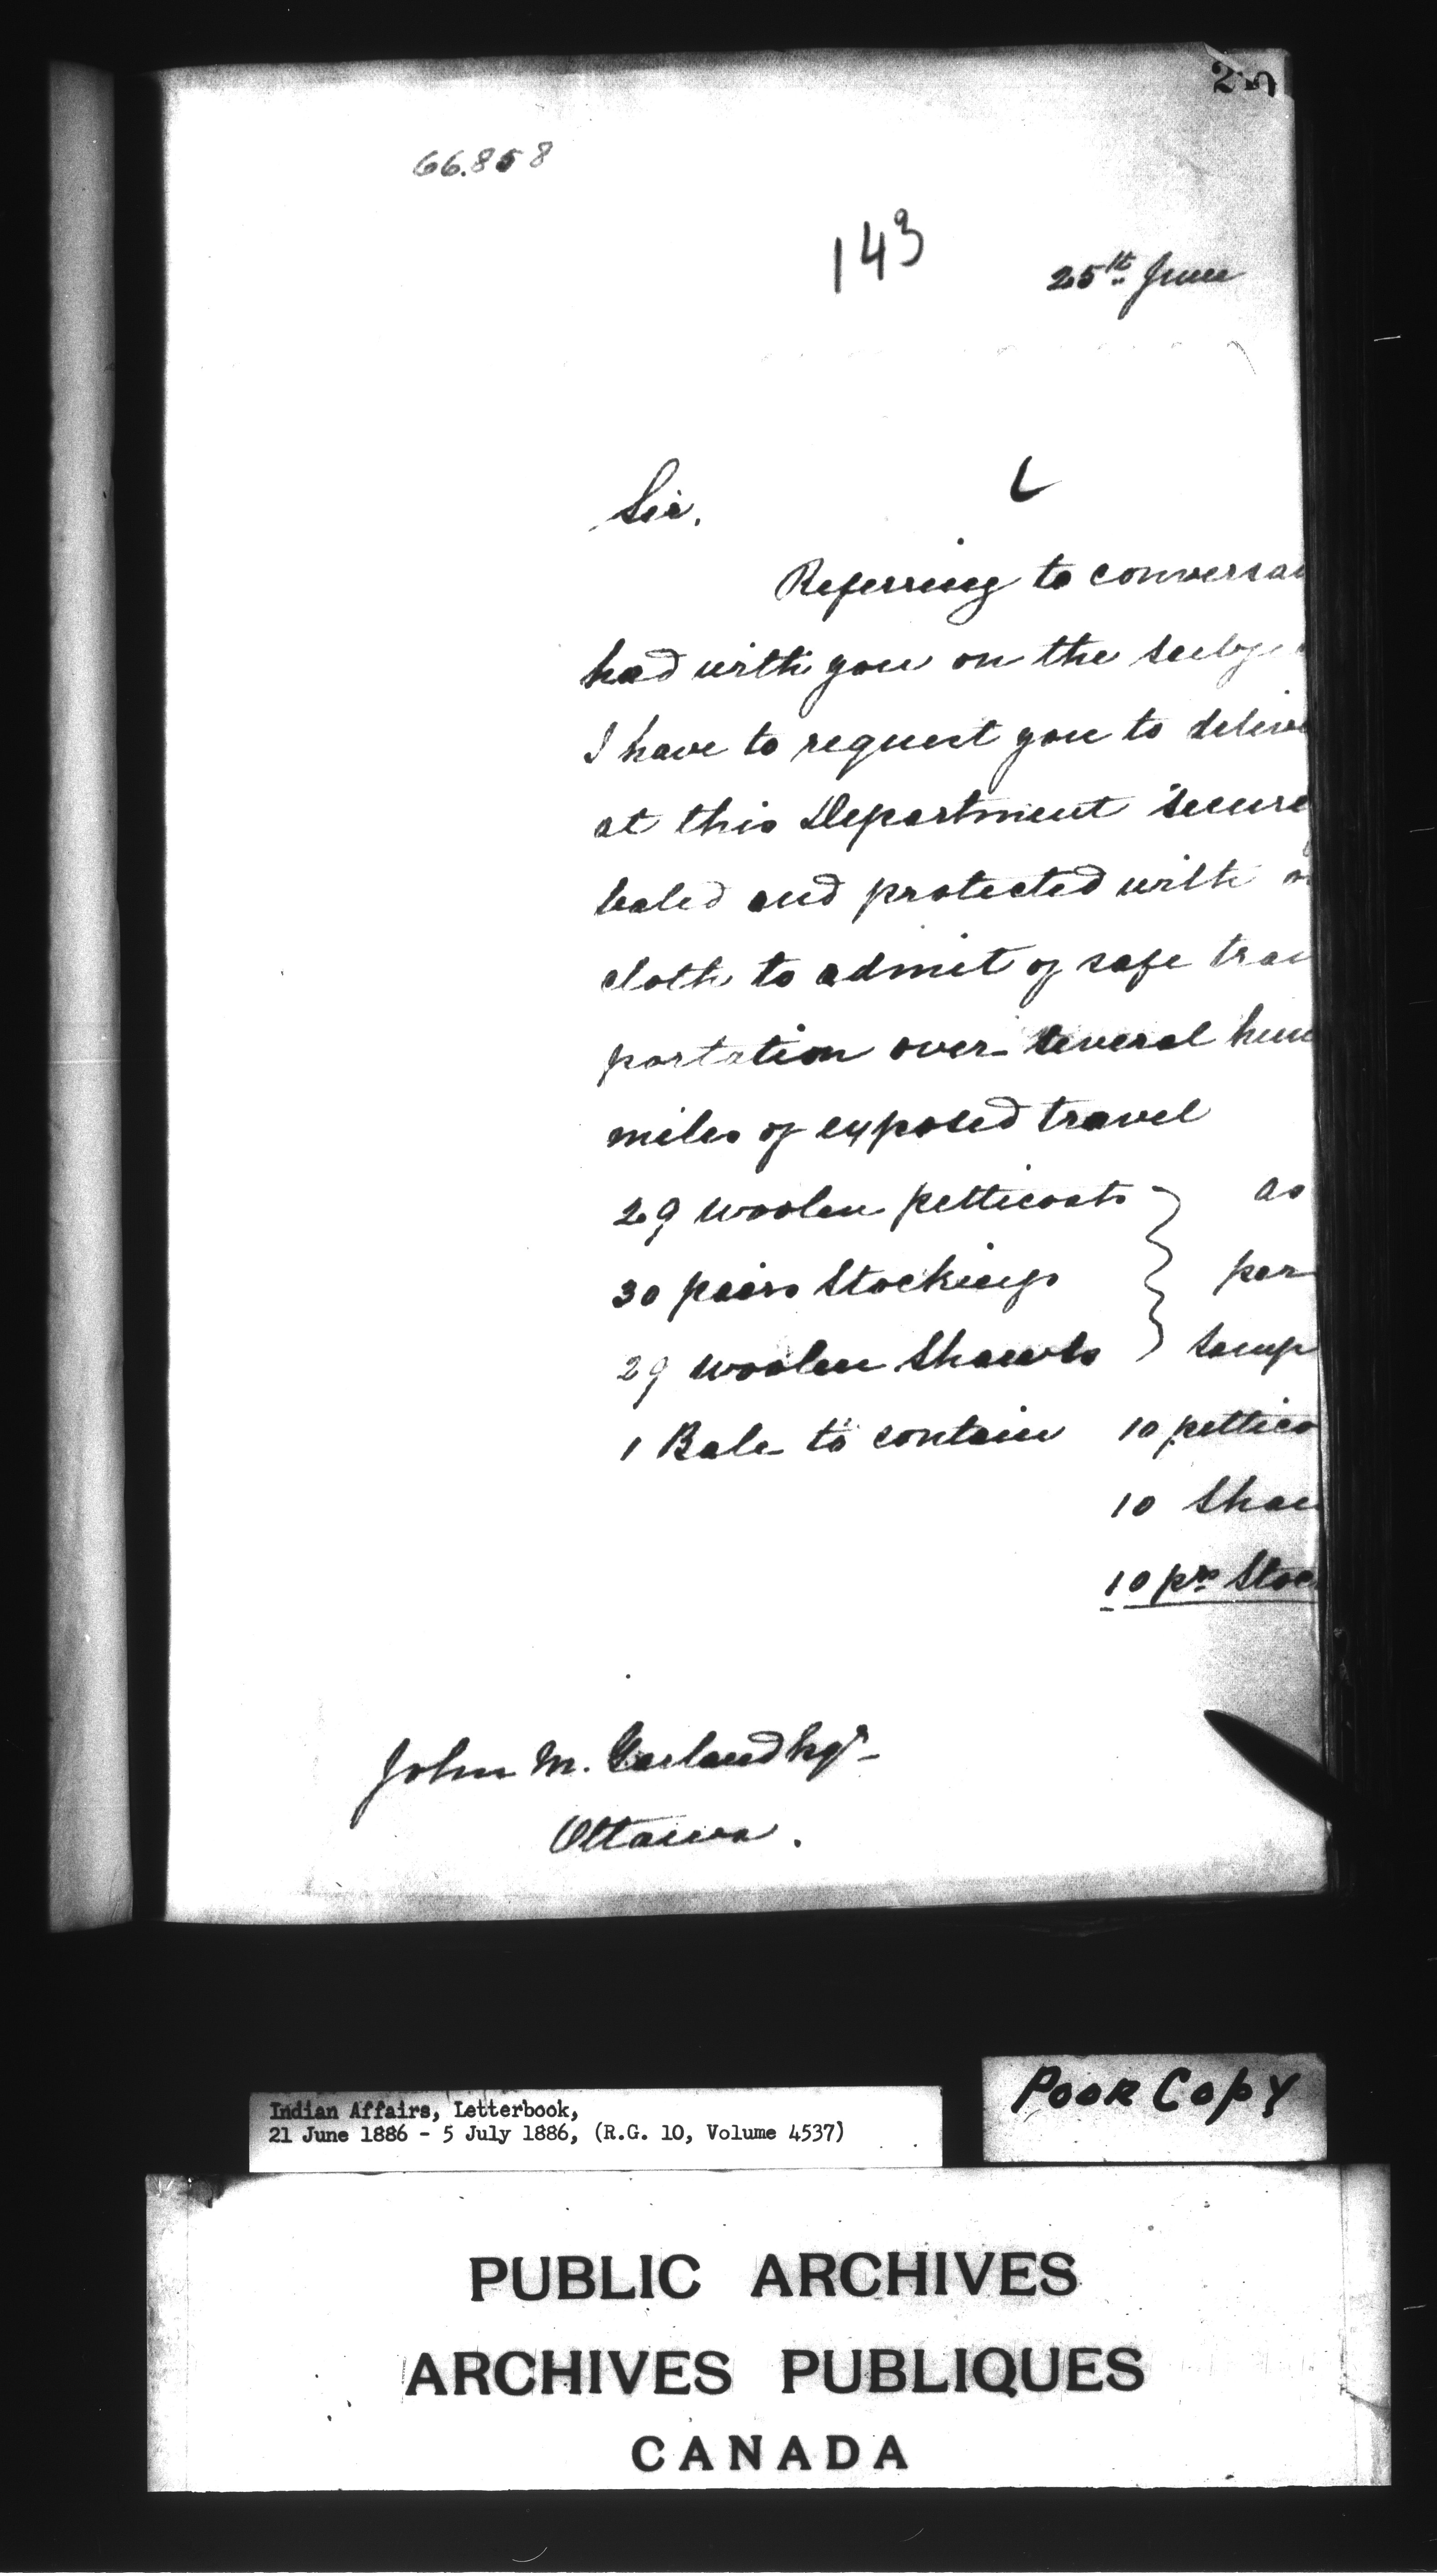 66.858
143
25th June
Sir,
Referring to conversa
had with you on the subje
I have to request you to delive
at this Department secure
baled and protected with
cloth to admit of safe tran
portation over several hun
miles of exposed travel
29 woolen petticoats } as
30 pairs Stockings } per
29 woolen Shawls } samp
1 Bale to contain 10 pettico
10 Shaw
10 prs Stoc
John M. Garland Esqr
Ottawa.
POOR COPY
Indian Affairs, Letterbook,
21 June 1886 - 5 July 1886, (R.G. 10, Volume 4537)
PUBLIC ARCHIVES
ARCHIVES PUBLIQUES
CANADA